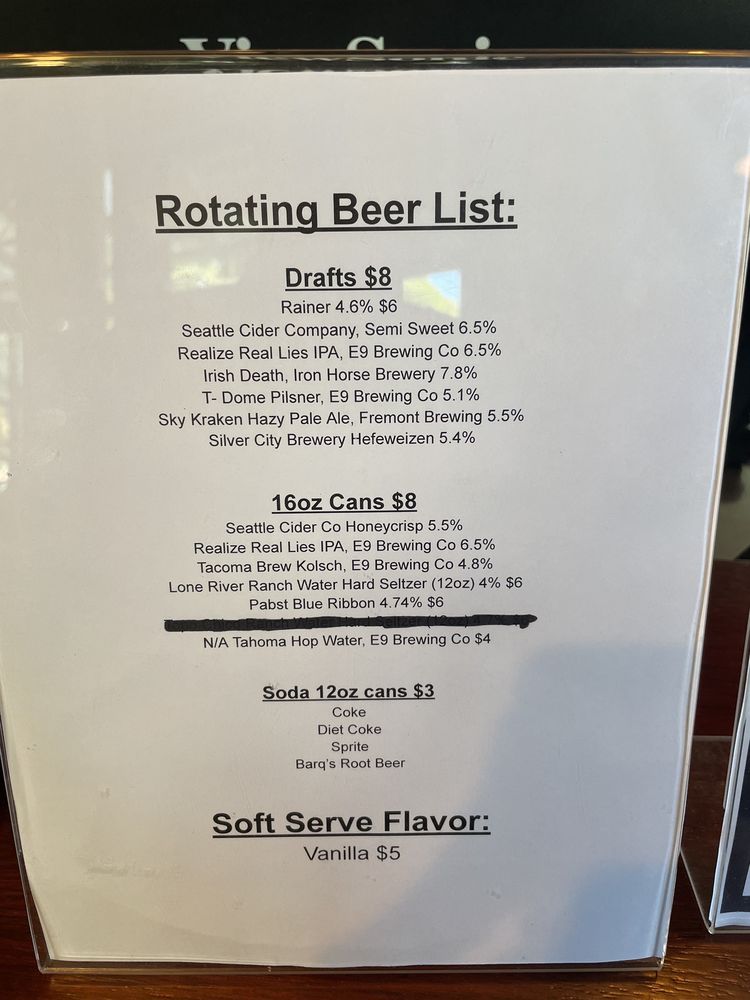 Rotating Beer List:
Drafts $8
Rainer 4.6% $6
Seattle Cider Company, Semi Sweet 6.5%
Realize Real Lies IPA, E9 Brewing Co 6.5%
Irish Death, Iron Horse Brewery 7.8%
T- Dome Pilsner, E9 Brewing Co 5.1%
Sky Kraken Hazy Pale Ale, Fremont Brewing 5.5%
Silver City Brewery Hefeweizen 5.4%
16oz Cans $8
Seattle Cider Co Honeycrisp 5.5%
Realize Real Lies IPA, E9 Brewing Co 6.5%
Tacoma Brew Kolsch, E9 Brewing Co 4.8%
Lone River Ranch Water Hard Seltzer (12oz) 4% $6
Pabst Blue Ribbon 4.74% $6
Water Hard Seltzer (12oz)
N/A Tahoma Hop Water, E9 Brewing Co $4
Soda 12oz cans $3
Coke
Diet Coke
Sprite
Barq's Root Beer
Soft Serve Flavor:
Vanilla $5